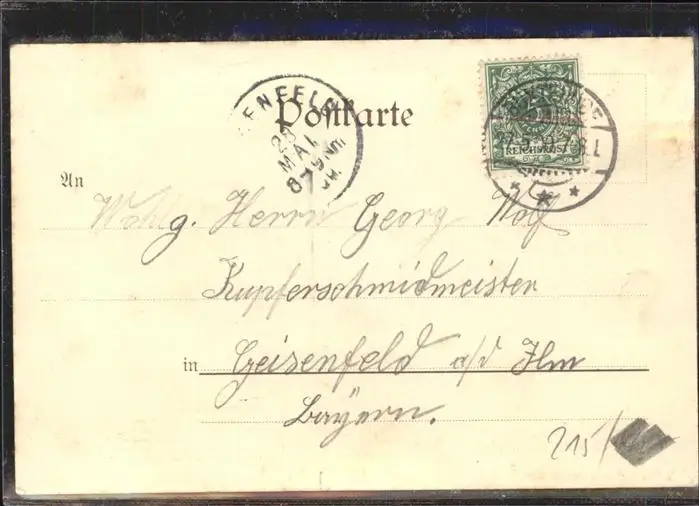 Postkarte
ENFELD
28
MAI
8-9 Nm
REICHSPOST
An
Wohlg. Herrn Georg Wolf
Kupferschmidmeister
in Geisenfeld a/d Ilm
Bayern.
215/